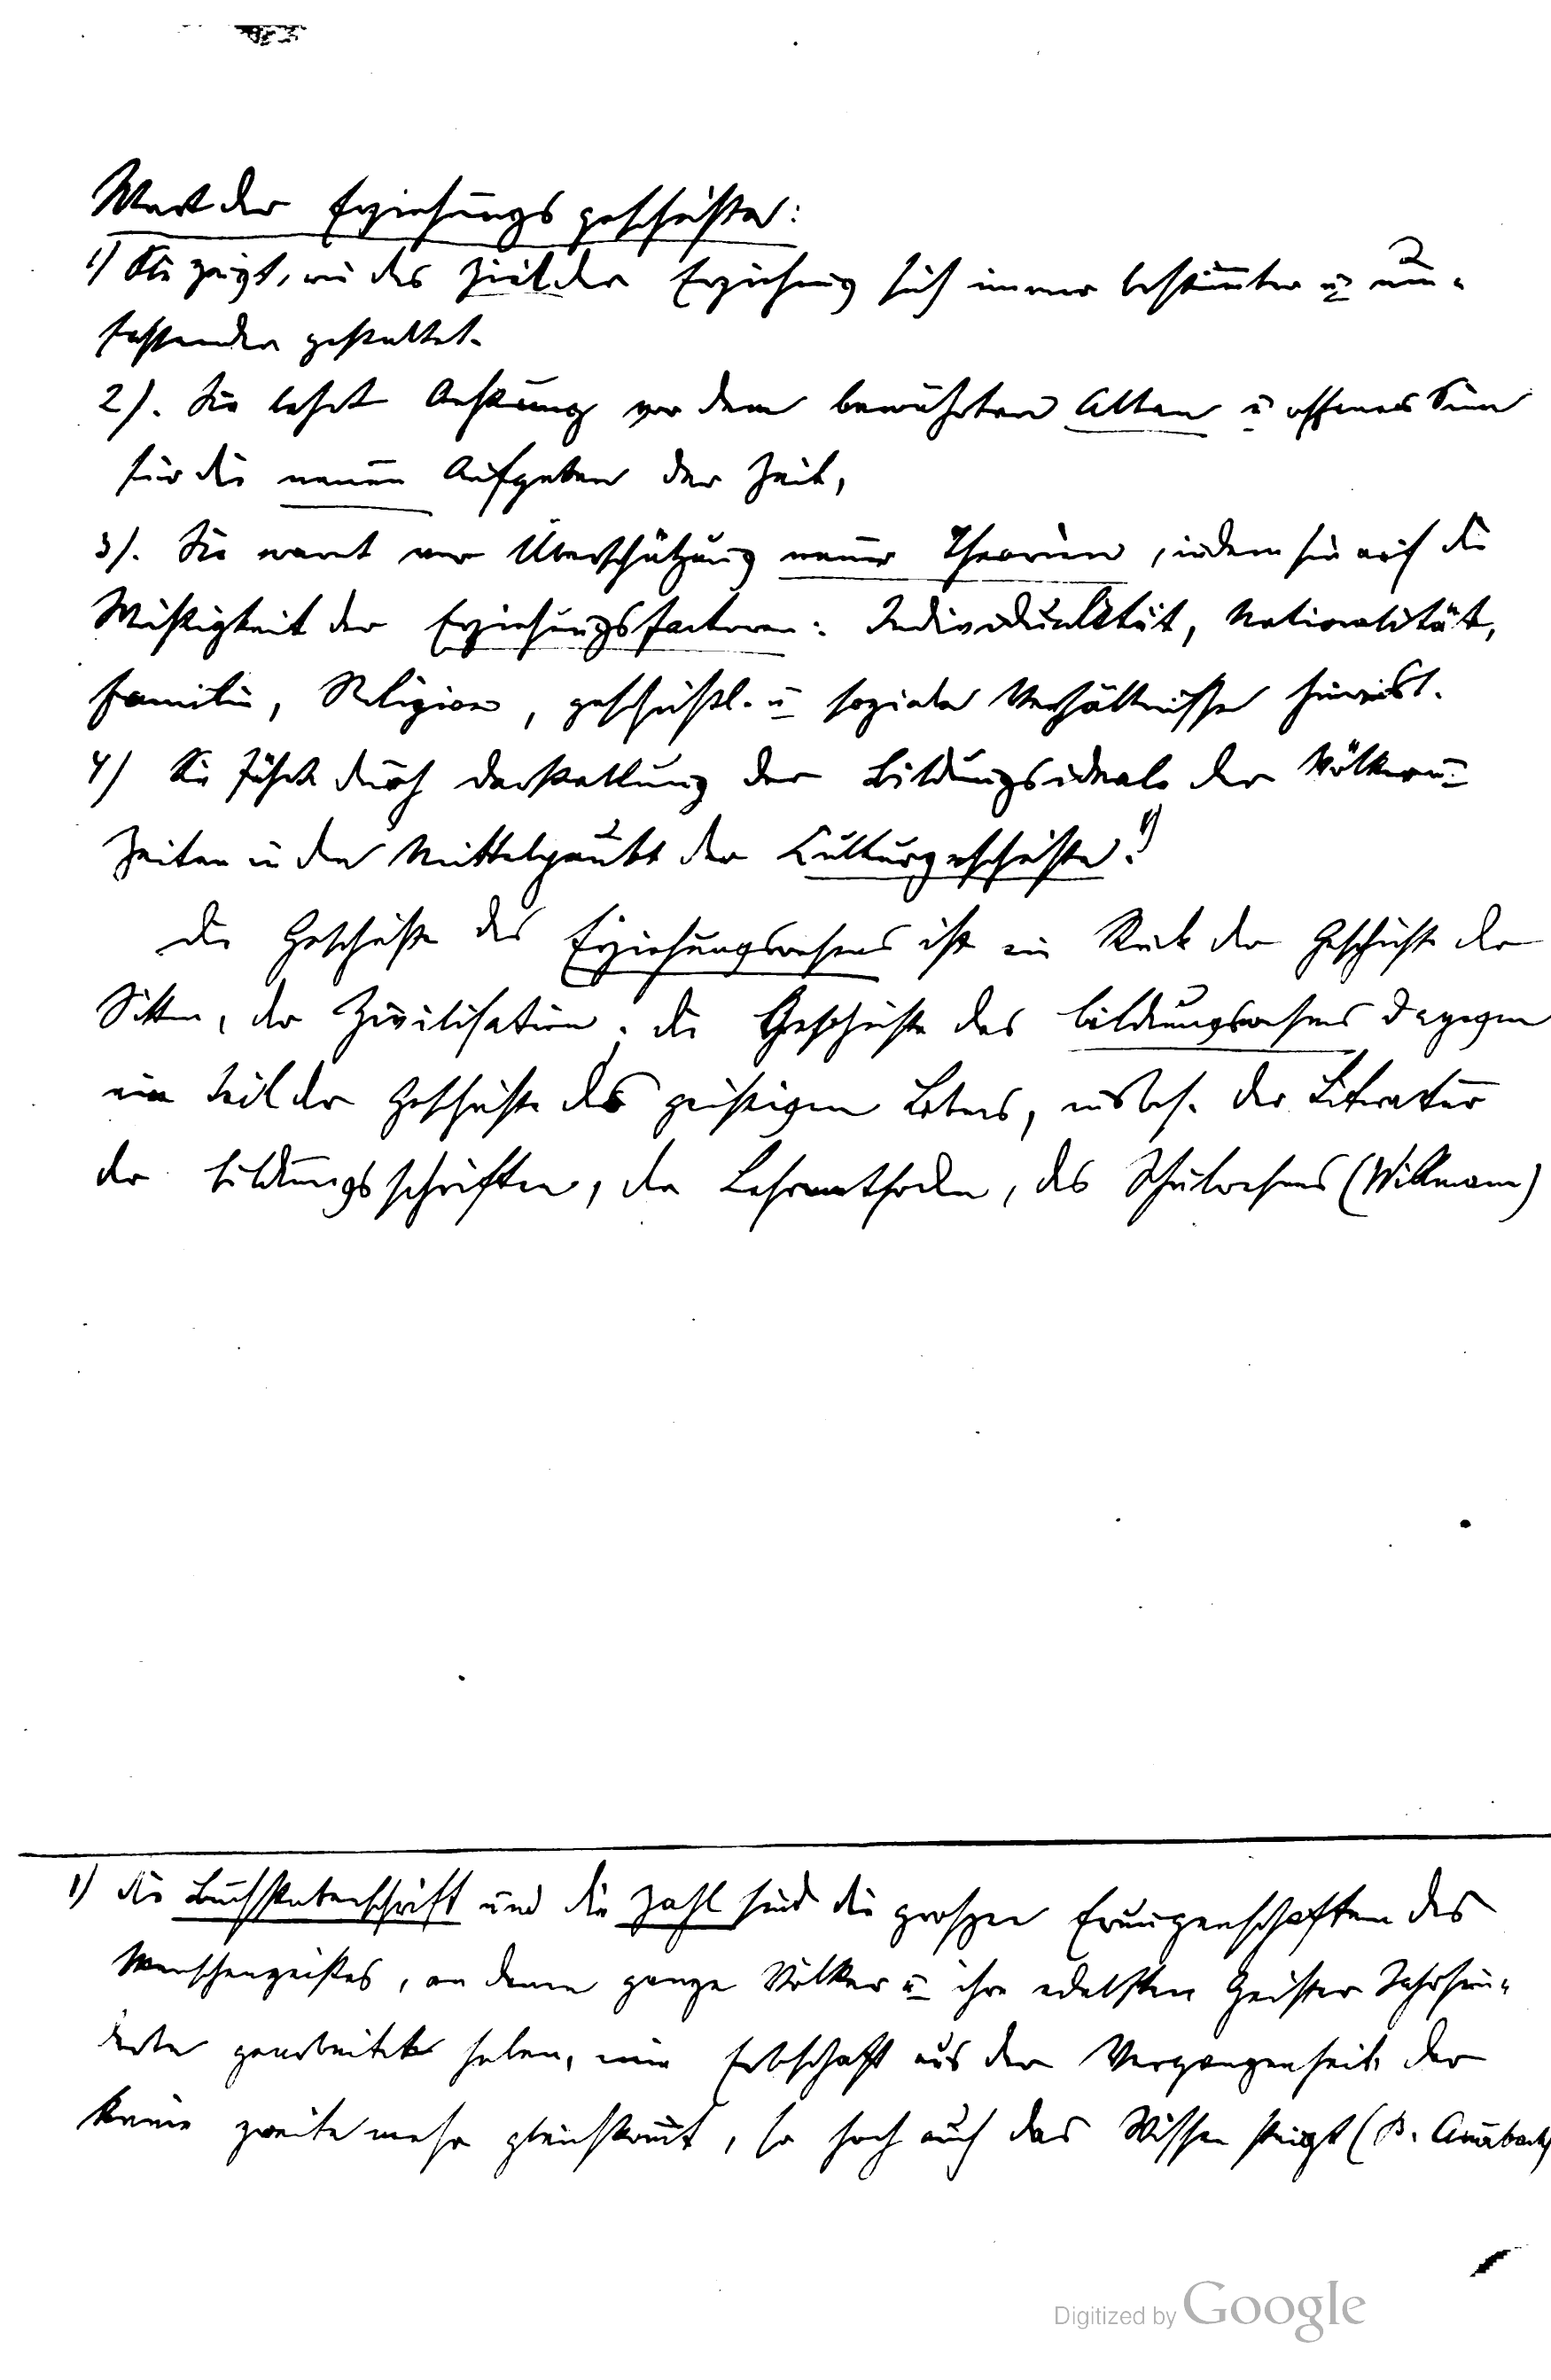 Wert der Erziehungsgeschichte:
1) Sie zeigt, wie das Ziel der Erziehung sich immer bestimmter u um-
fassender gestaltet.
2). Sie lehrt Achtung vor dem bewährten Alten u offenen Sinn
für die neuen Aufgaben der Zeit,
3). Sie warnt vor Überschätzung neuer Theorien, indem sie auf die
Wichtigkeit der Erziehungsfactoren: Individualität, Nationalität,
Familie, Religion, geschichtl. u soziale Verhältnisse hinweist.
4) Sie führt durch Darstellung der Bildungsideale der Völker u
Zeiten in den Mittelpunkt der Culturgeschichte.1)
Die Geschichte des Erziehungswesens ist ein Stück der Geschichte der
Sitten, der Zivilisation; die Geschichte des Bildungswesens dagegen
ein Teil der Geschichte des geistigen Lebens, insbes. der Literatur
der Bildungsschriften, der Lehrmethoden, des Schulwesens (Willmann)
1) die Buchstabenschrift und die Zahl sind die groszen Erungenschaften des
Menschengeistes, an denen ganze Völker u ihre edelsten Geister Jahrhun-
derte gearbeitet haben, eine Erbschaft aus der Vergangenheit, der
keine zweite mehr gleichkommt, so hoch auch das Wissen steigt (B. Auerbach)
Digitized by Google